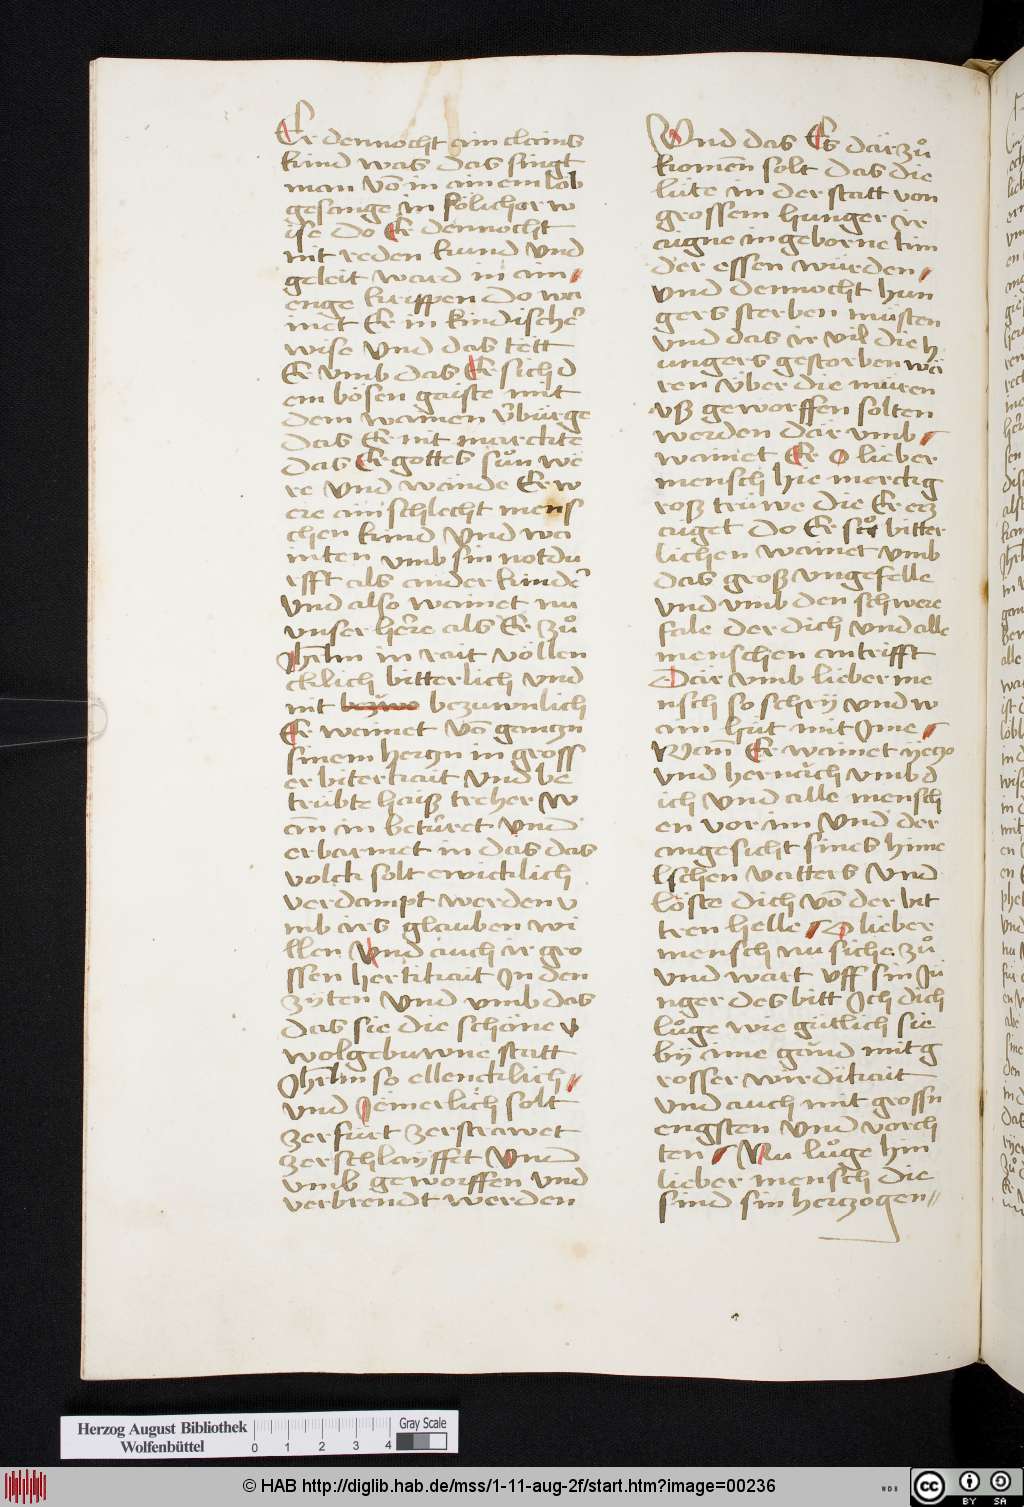 Er dennocht ain clains
kind was das singt
man vō in ainem lob
gesange in sölicher w
ise do Er dennocht
nit reden kund vnd
geleit ward in ain
enge krippen do wa
inet Er in kindischer
wise vnd das tett
Er vmb das Er sich d
em bösen gaiste mit
dem wainen v̄bürge
das Er nit marckte
das Er gottes sůn we
re vnd wande Er w
ere ain schlecht mens
chen kind vnd wa
inten vmb sin notdu
rfft als ander kinder
vnd also wainet nu
vnser here als Er zů
Jhrlm in rait völlen
cklich bitterlich vnd
nit bezuwnlich
Er wainet vō ganczn
sinem herczn in gross
er biterkait vnd be
trübte haiß treher w
an in beturet vnd
erbarmet in das das
volck solt ewicklich
verdampt werden v
mb irs glauben wi
llen vnd auch ir gro
ssen hertikait In den
zyten vnd vmb das
das sie die schöne v
wolgebuwne statt
Jhrlm so ellencklich
vnd Jemerlich solt
zerfürt zerstrawet
zerschlayffet vnd
vmb geworffen vnd
verbrendt werden
Vnd das Es darzů
komen solt das die
lüte in der statt von
grossem hunger ir
aigne ingeborne kin
der essen würden
vnd dennocht hun
gers sterben müsten
vnd das ir vil die h
ungers gestorben wä
ren über die muren
vß geworffen solten
werden där vmb
wainet Er O lieber
mensch hie merck g
roß trüwe die Er erz
aiget do Er so bitter
lichen wainet vmb
das groß vngefelle
vnd vmb den schwere
fale der dich vnd alle
menschen antrifft
Där vmb lieber me
nsch so schry vnd w
ain hüt mit Ime
Wan Er wainet yeczo
vnd hernäch vmb d
ich vnd alle mensch
en vor im vnd der
angesicht sines hime
lschen vatters vnd
löste dich vō der bit
tren helle O lieber
mensch nu siche zů
vnd wart vff sin Jü
nger des bitt Ich dich
lůge wie gütlich sie
by ime gand mit g
rosser wirdikait
vnd auch mit grossn
engsten vnd vorch
ten Nu lůge hin
lieber mensch die
sind sin herczogen
Herzog August Bibliothek
Wolfenbüttel
0 1 2 3 4
Gray Scale
© HAB http://diglib.hab.de/mss/1-11-aug-2f/start.htm?image=00236
WDB
cc BY SA